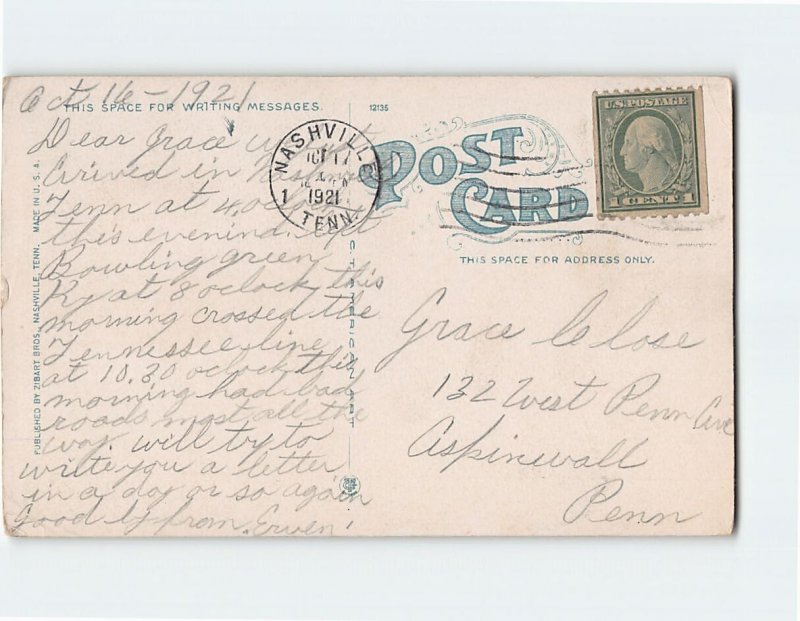 Oct 16 - 1921
THIS SPACE FOR WRITING MESSAGES.
12135
POST CARD
U.S. POSTAGE
1 CENT 1
NASHVILLE
OCT 17
1921
1
TENN.
Dear Grace
arrived in
Tenn at 4
this evenind. left
Bowling green
Ky at 8 oclock this
morning crossed the
Tennessee line
at 10.30 oclock this
morning had bad
roads most all the
way. will try to
write you a letter
in a day or so again
Good by from Erwen.
THIS SPACE FOR ADDRESS ONLY.
Grace Close
132 West Penn Ave
Aspinwall
Penn
PUBLISHED BY ZIBART BROS., NASHVILLE, TENN. MADE IN U.S.A.
C.T. AMERICAN ART